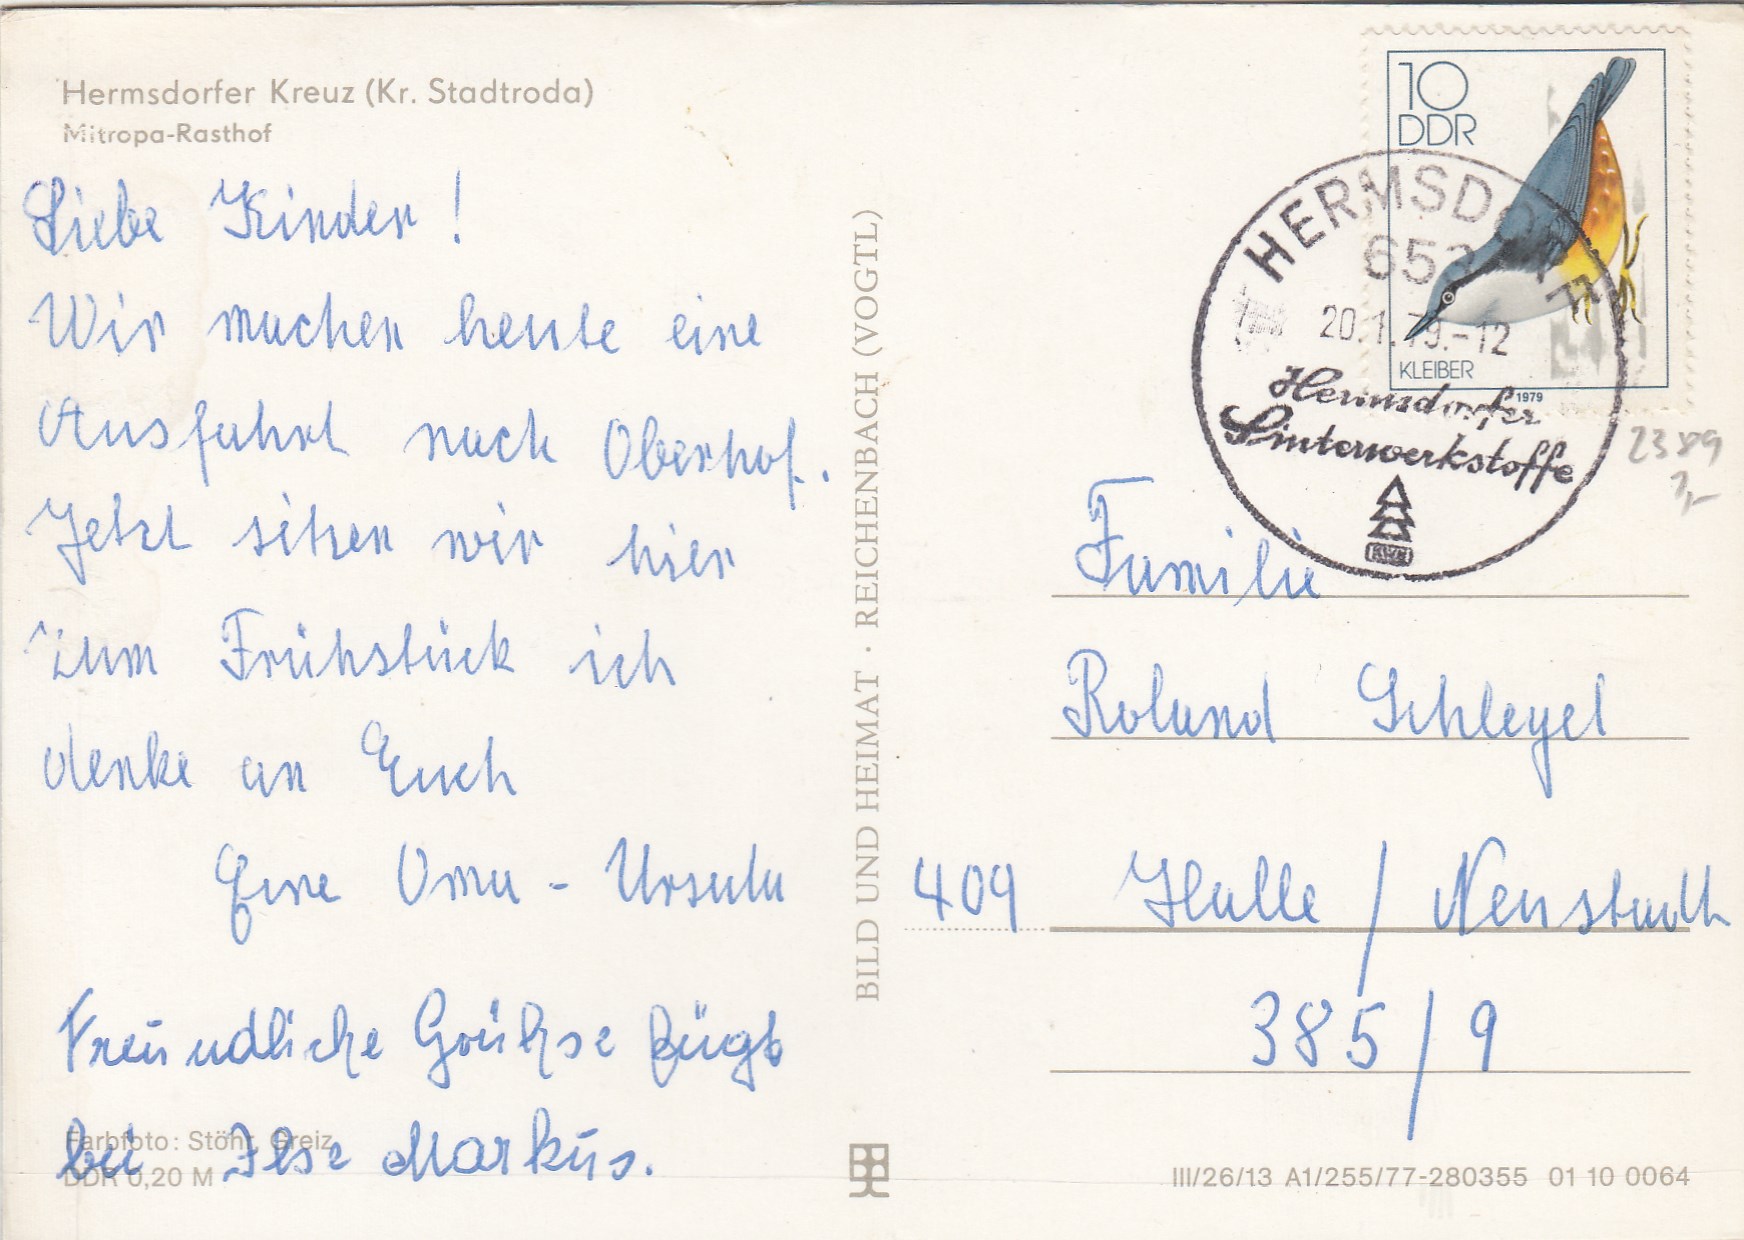 Hermsdorfer Kreuz (Kr. Stadtroda)
Mitropa-Rasthof
Liebe Kinder!
Wir machen heute eine
Ausfahrt nach Oberhof.
Jetzt sitzen wir hier
zum Frühstück ich
denke an Euch
Eure Oma - Ursula
Freundliche Grüße fügt
bei Ilse Markus.
Farbfoto: Stöhr, Greiz
DDR 0,20 M
BILD UND HEIMAT · REICHENBACH (VOGTL)
10
DDR
KLEIBER
1979
HERMSDORF
653
20.1.79.-12
Hermsdorfer
Sinterwerkstoffe
2389
1,-
Familie
Roland Schlegel
409 Halle / Neustadt
385/9
III/26/13 A1/255/77-280355 01 10 0064